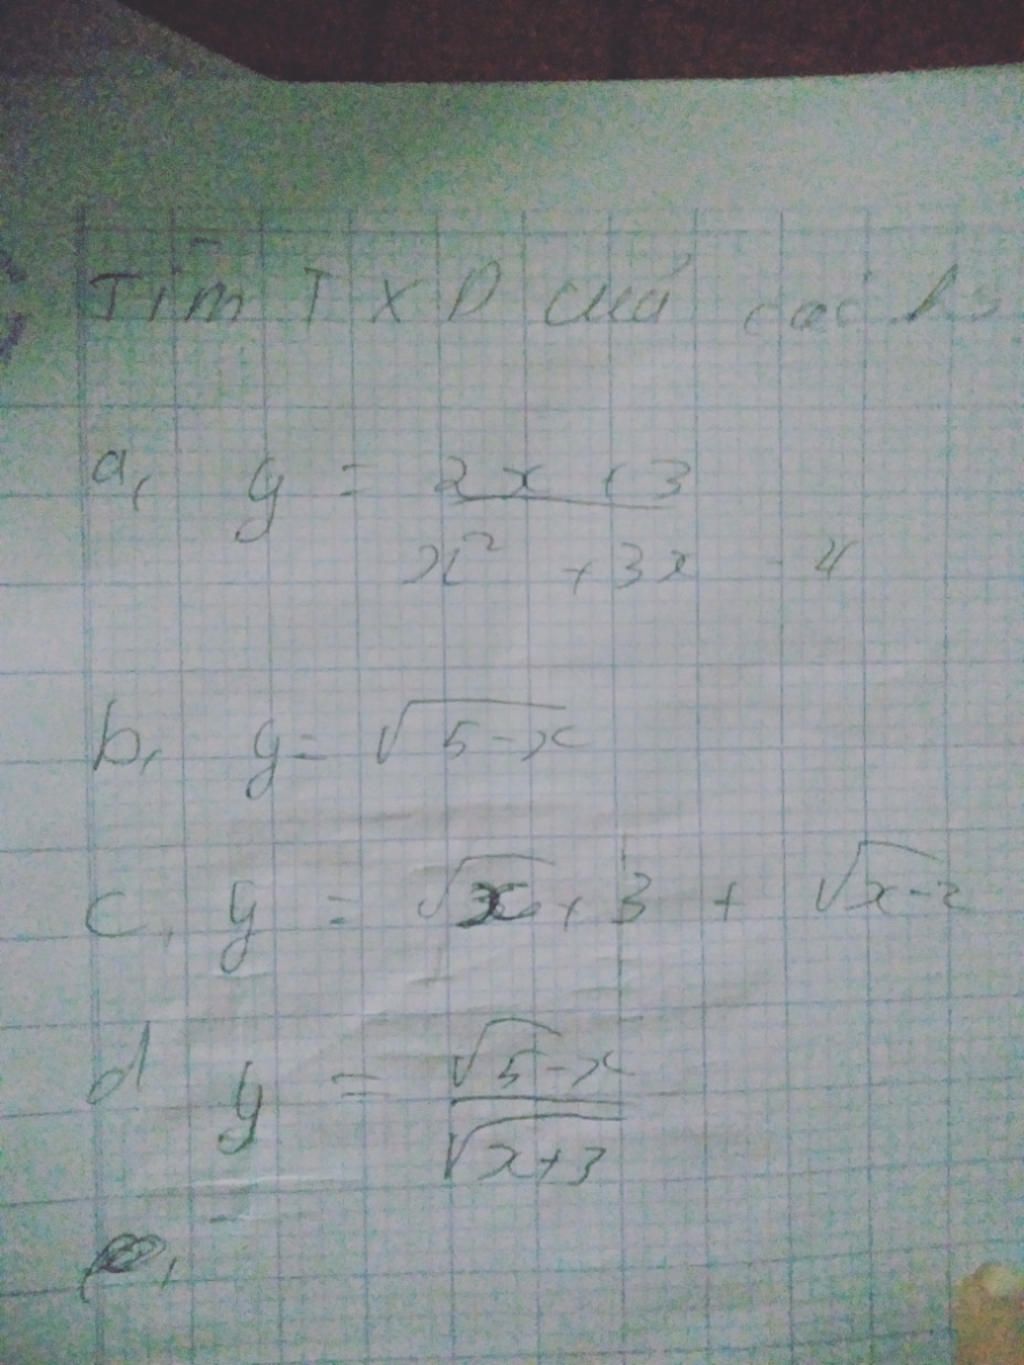 Tìm TXD cuả các hs
a, y = 2x + 3
x² + 3x - 4
b, y = √5-x
c, y = √x + 3 + √x-2
d y = √5-x
√x+3